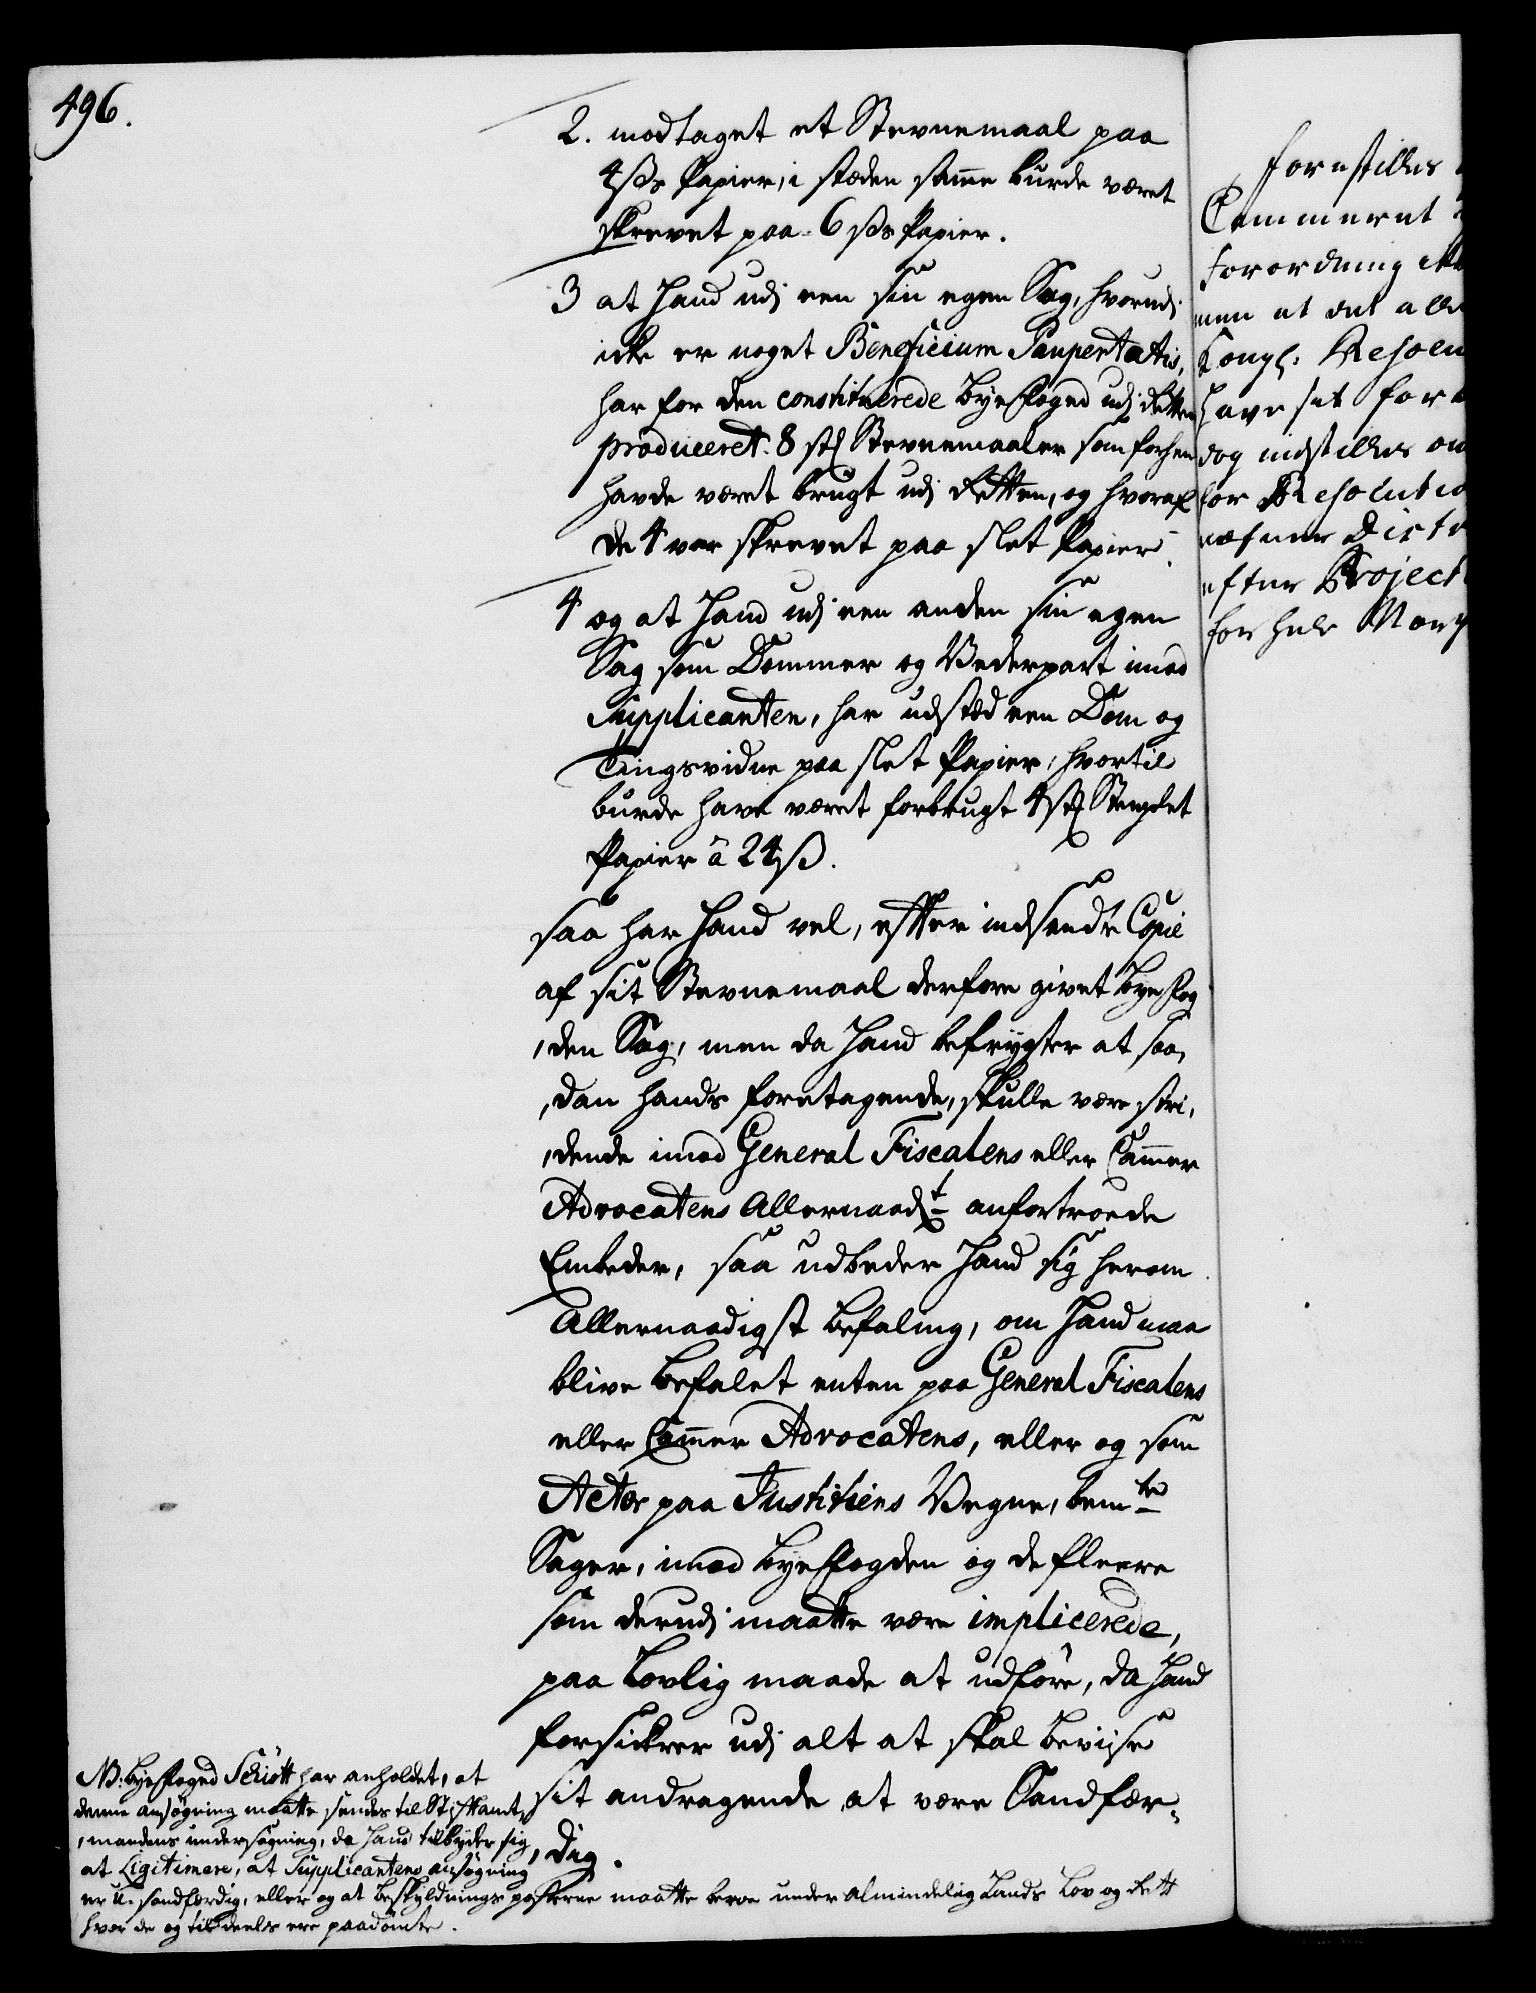 496.
2. modtaget et Stevnemaal paa
4 ß Papier, i stæden samme burde været
skrevet paa 6 ß Papier.
3 at Hand udj een sin egen Sag, hvorudj
icke er noget Beneficium Paupertatis,
har for den constituerede Byefoged udj Retten
produceret 8 st Stevnemaaler som forhen
havde været brugt udj Retten, og hvoraf
de 4 var skrevet paa slet Papier.
4 og at Hand udj een anden sin egen
Sag som Dommer og Vederpart imod
Supplicanten, har udstæd een Dom og
Tingsvidne paa slet Papier, hvortil
burde have været forbrugt 4 st Stemplet
Papier à 24 ß.
saa har Hand vel, efter indsendte Copie
af sit Stevnemaal derfore givet Byefog
den Sag, men da Hand befrygter at saa,
dan hands foretagende, skulle være stri,
dende imod General Fiscalens eller Cammer
Advocatens Allernaadt anfortroede
Embeder, saa udbeder Hand sig herom
Allernaadigst Befaling, om Hand maa
blive befalet enten paa General Fiscalens
eller Cammer Advocatens, eller og som
Actor paa Justitiens Vegne, bemte
Sager, imod Byefogden og de fleere
som derudj maatte være implicerede,
paa Lovlig maade at udføre, da Hand
forsickrer udj alt at skal beviise
sit andragende at være Sandfær,
dig.
NB: Byefoged Schiøtt har anholdet, at
denne ansøgning maatte sendes til Stiftamt,
mandens undersøgning, da Hand tilbyder sig
at Ligitimere, at Supplicantens ansøgning
er u-sandfærdig, eller og at beskyldnings posterne maatte beroe under almindelig Lands Lov og Rett
hvor de og tildeels ere paadømte.
forestilles
Commercet
forordning
men at det alle
Kongl. Resolu
have set for
dog indstilles om
for Resolutio
nefner Distr
efter Project
for hele Norg